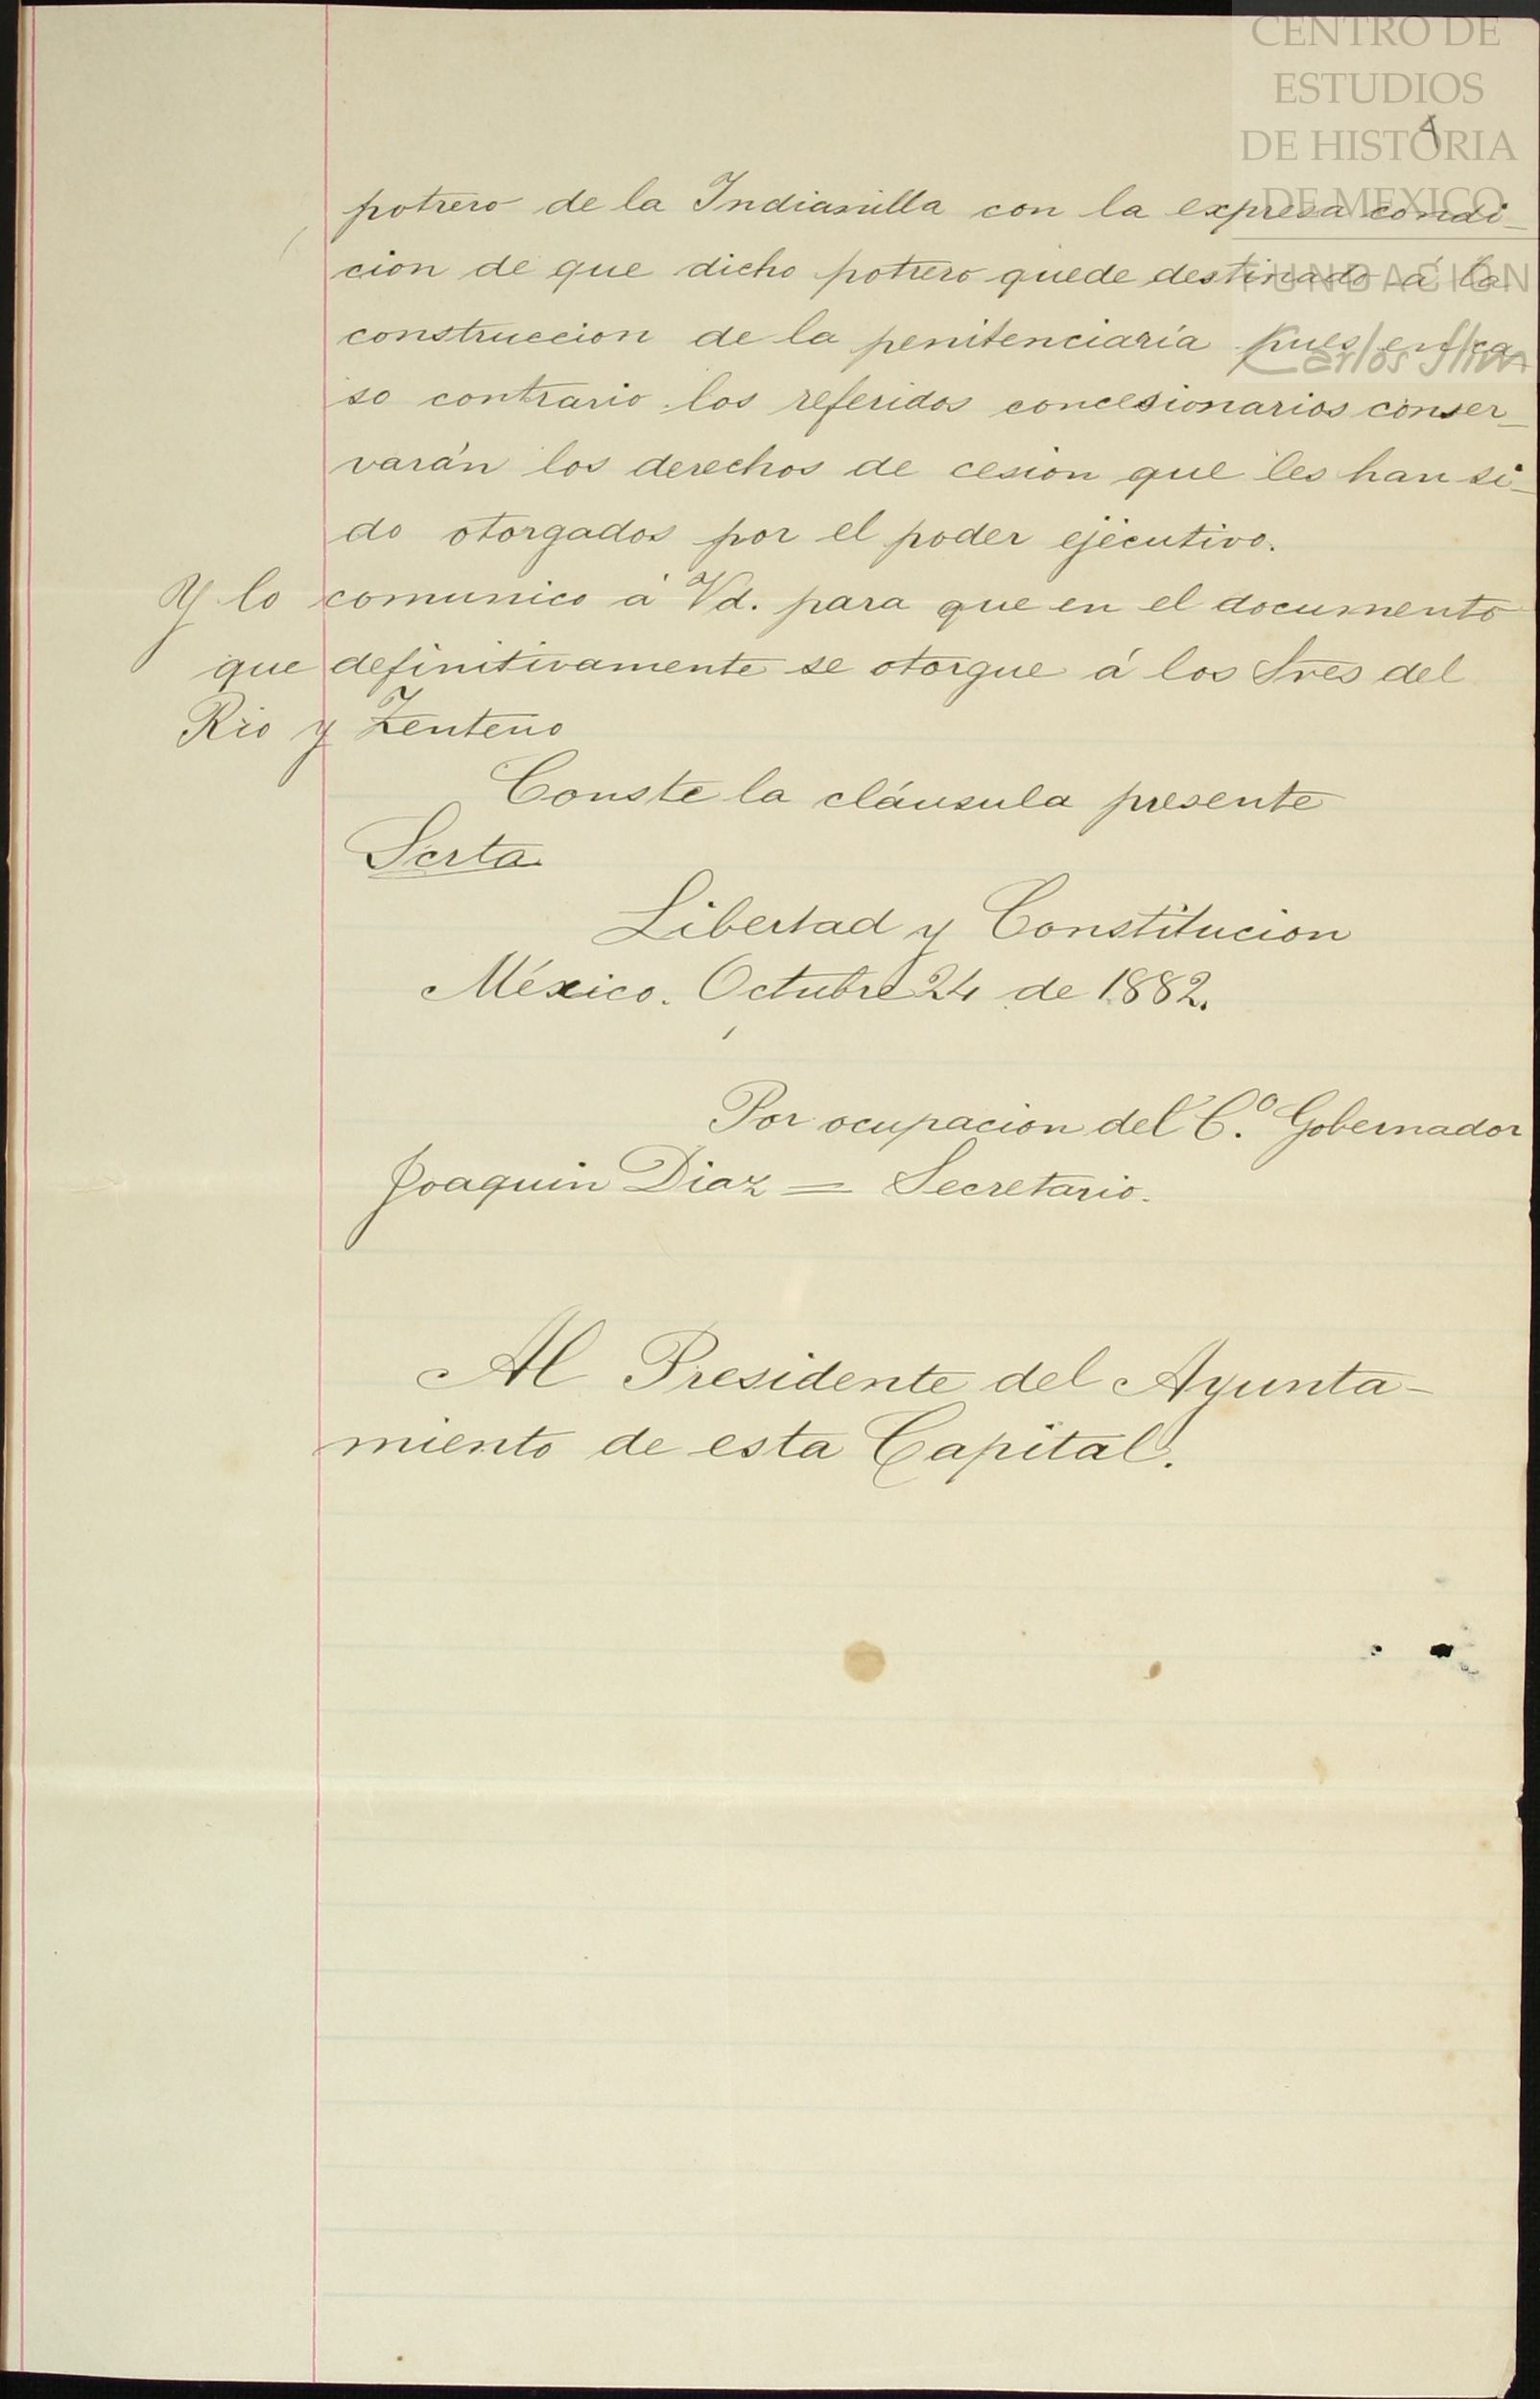 CENTRO DE
ESTUDIOS
DE HISTORIA
DE MEXICO
FUNDACION
Carlos Slim
4
potrero de la Indianilla con la expresa condi_
cion de que dicho potrero quede destinado á la
construccion de la penitenciaría pues en ca
so contrario los referidos concesionarios conser_
varán los derechos de cesion que les han si_
do otorgados por el poder ejecutivo.
Y lo comunico á Vd. para que en el documento
que definitivamente se otorgue á los Sres del
Rio y Zenteno
Conste la cláusula presente
Serta.
Libertad y Constitucion
México. Octubre 24 de 1882.
Por ocupacion del C.º Gobernador
Joaquin Diaz = Secretario.
Al Presidente del Ayunta-
miento de esta Capital.